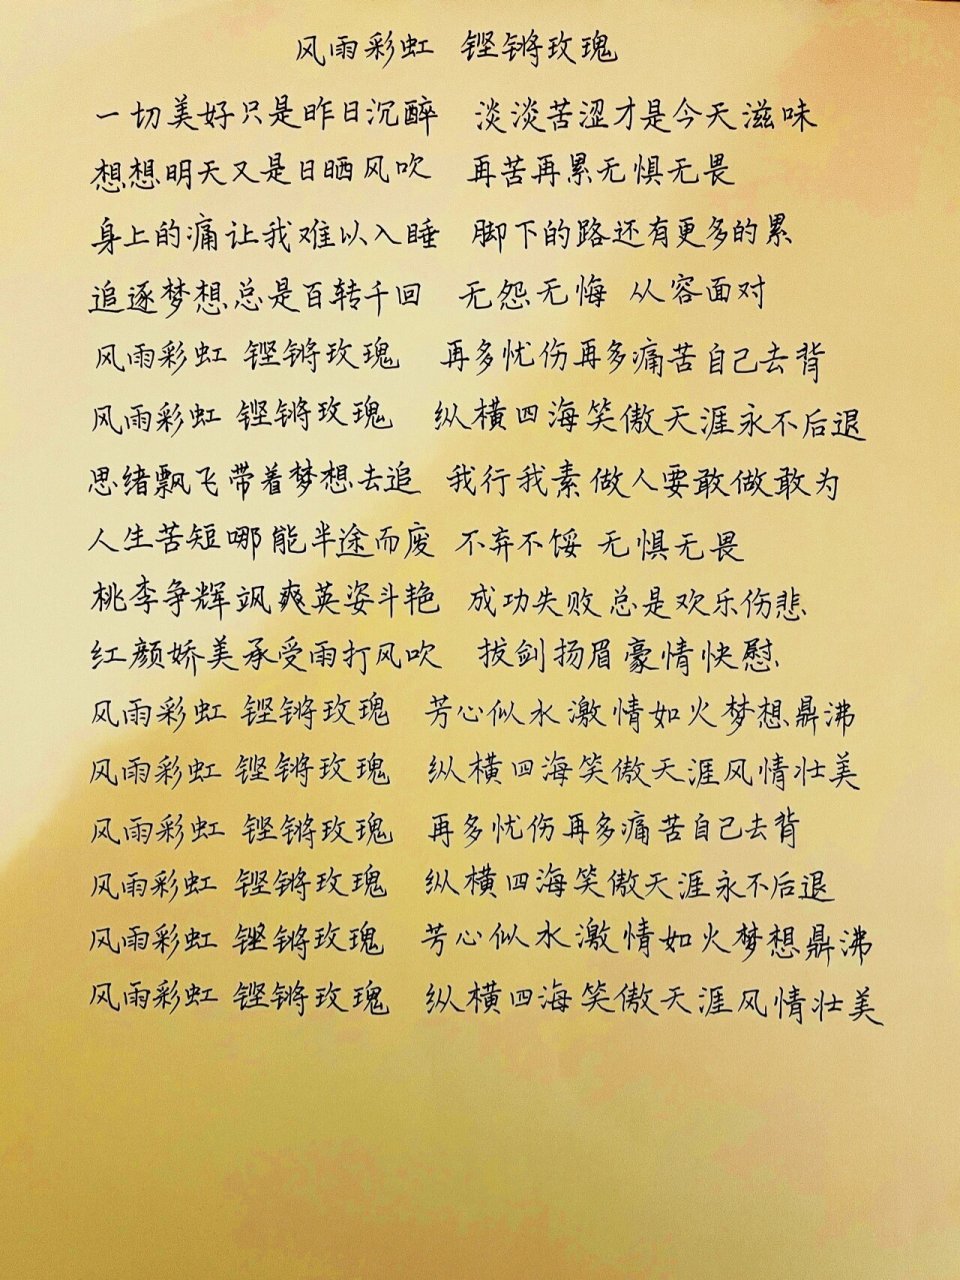 风雨彩虹 铿锵玫瑰
一切美好只是昨日沉醉 淡淡苦涩才是今天滋味
想想明天又是日晒风吹 再苦再累无惧无畏
身上的痛让我难以入睡 脚下的路还有更多的累
追逐梦想总是百转千回 无怨无悔 从容面对
风雨彩虹 铿锵玫瑰 再多忧伤再多痛苦自己去背
风雨彩虹 铿锵玫瑰 纵横四海笑傲天涯永不后退
思绪飘飞带着梦想去追 我行我素做人要敢做敢为
人生苦短哪能半途而废 不弃不馁 无惧无畏
桃李争辉飒爽英姿斗艳 成功失败总是欢乐伤悲
红颜娇美承受雨打风吹 拔剑扬眉豪情快慰
风雨彩虹 铿锵玫瑰 芳心似水激情如火梦想鼎沸
风雨彩虹 铿锵玫瑰 纵横四海笑傲天涯风情壮美
风雨彩虹 铿锵玫瑰 再多忧伤再多痛苦自己去背
风雨彩虹 铿锵玫瑰 纵横四海笑傲天涯永不后退
风雨彩虹 铿锵玫瑰 芳心似水激情如火梦想鼎沸
风雨彩虹 铿锵玫瑰 纵横四海笑傲天涯风情壮美